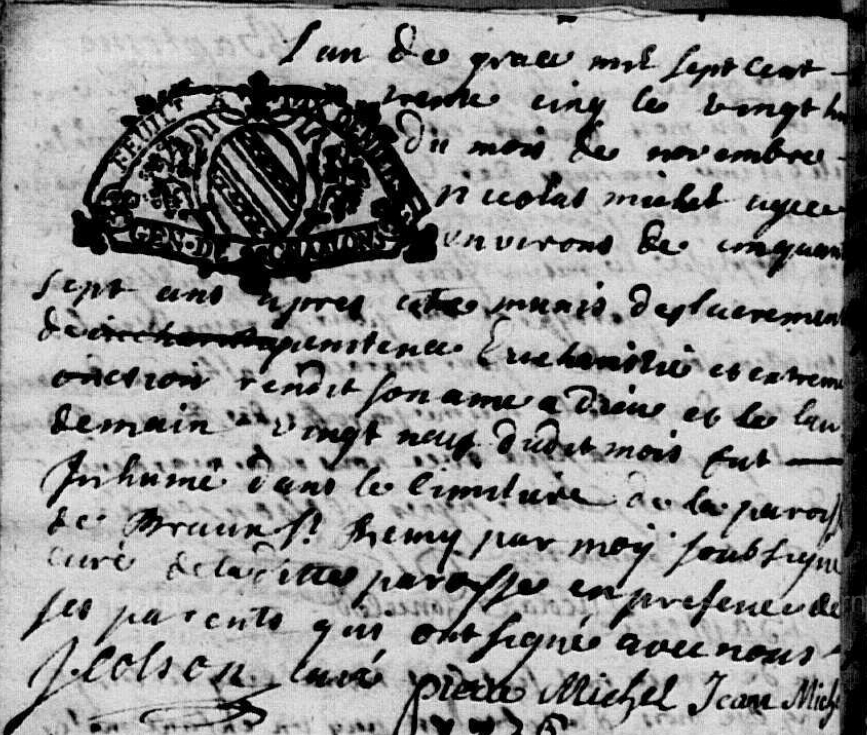 Lan de grace mil sept cent
trente cinq le vingt hu
du mois de novembre
Nicolas michel agee
environs de cinquant
sept ans apres estre munis des sacrement
de penitence Eucharistie et extreme
onction rendit son ame a Dieu et le lan
demain vingt neuf dudit mois fut
Inhumé dans le cimitiere de la paroiss
de Braux St Remy par moy soubsigne
curé de laditte paroisse en presence de
ses parents qui ont signé avec nous
J Colson curé pierre Michel Jean Mich
GEN. DE CHALONS